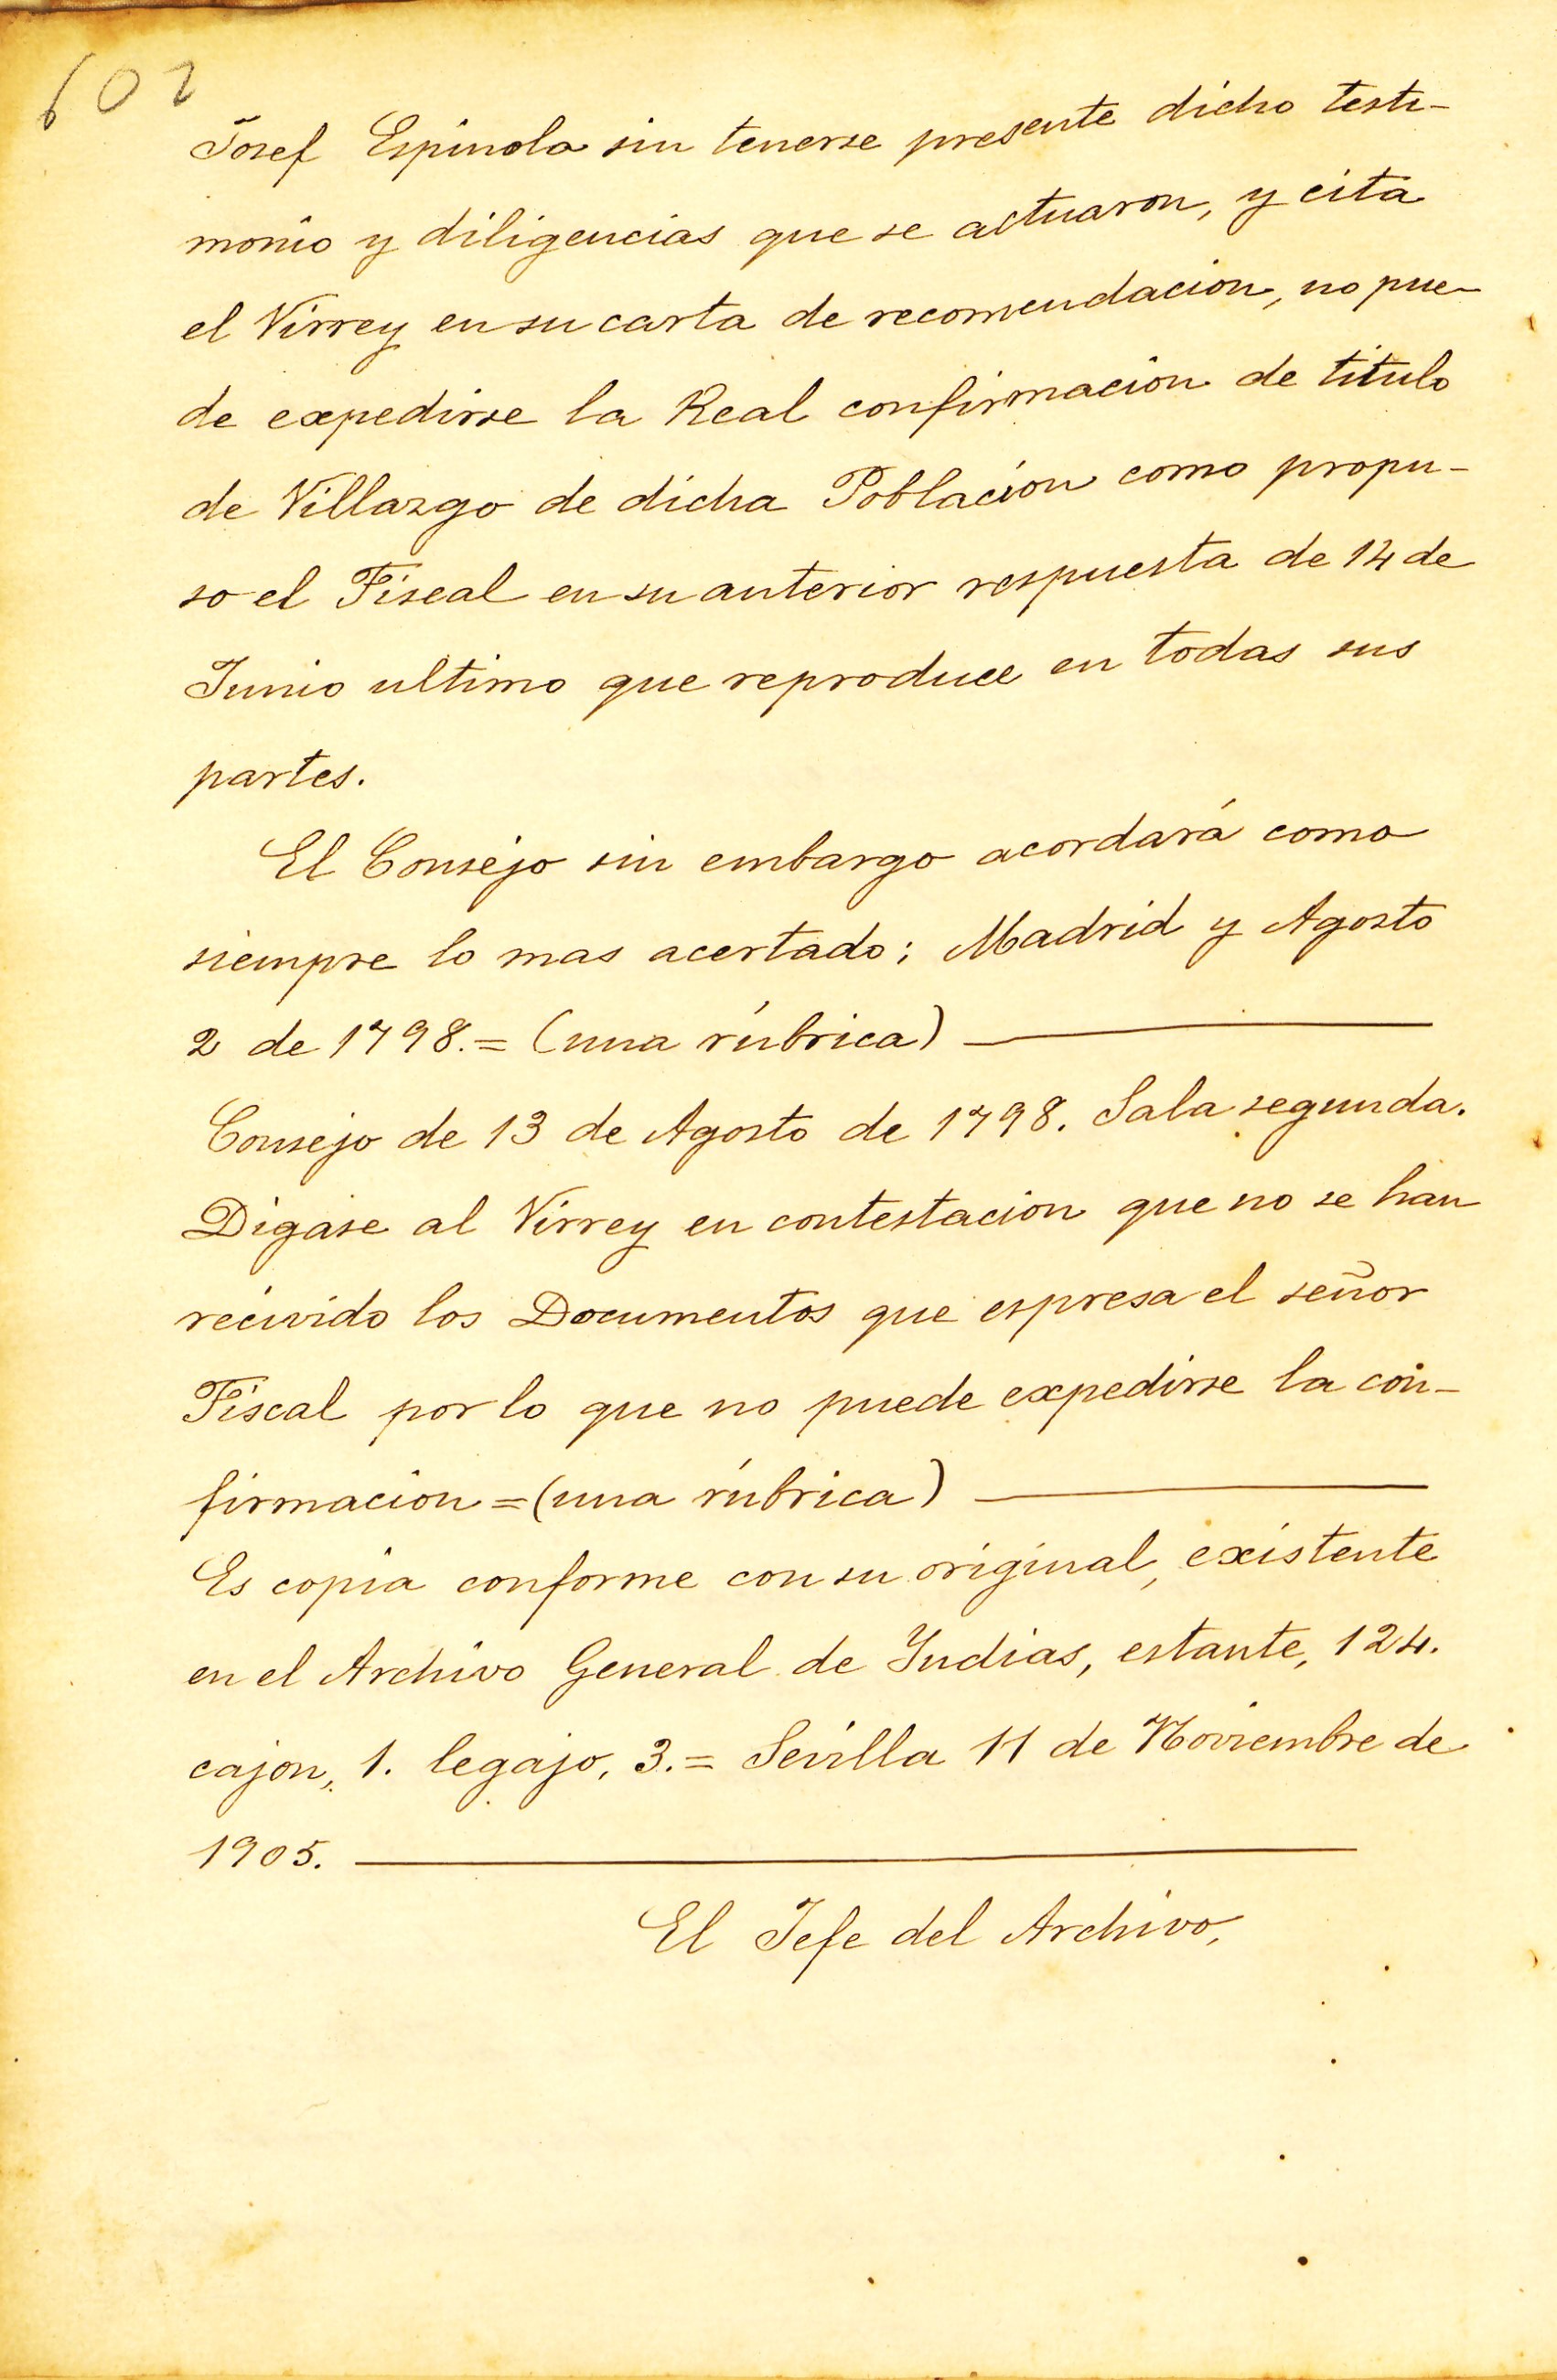 602
Josef Espinola sin tenerse presente dicho testi-
monio y diligencias que se actuaron, y cita
el Virrey en su carta de recomendacion, no pue-
de expedirse la Real confirmacion de titulo
de Villazgo de dicha Poblacion como propu-
so el Fiscal en su anterior respuesta de 14 de
Junio ultimo que reproduce en todas sus
partes.
El Consejo sin embargo acordará como
siempre lo mas acertado; Madrid y Agosto
2 de 1798.= (una rúbrica)
Consejo de 13 de Agosto de 1798. Sala segunda.
Digase al Virrey en contestacion que no se han
recivido los Documentos que espresa el señor
Fiscal por lo que no puede expedirse la con-
firmacion = (una rúbrica)
Es copia conforme con su original, existente
en el Archivo General de Indias, estante, 124.
cajon, 1. legajo, 3.= Sevilla 11 de Noviembre de
1905.
El Jefe del Archivo,